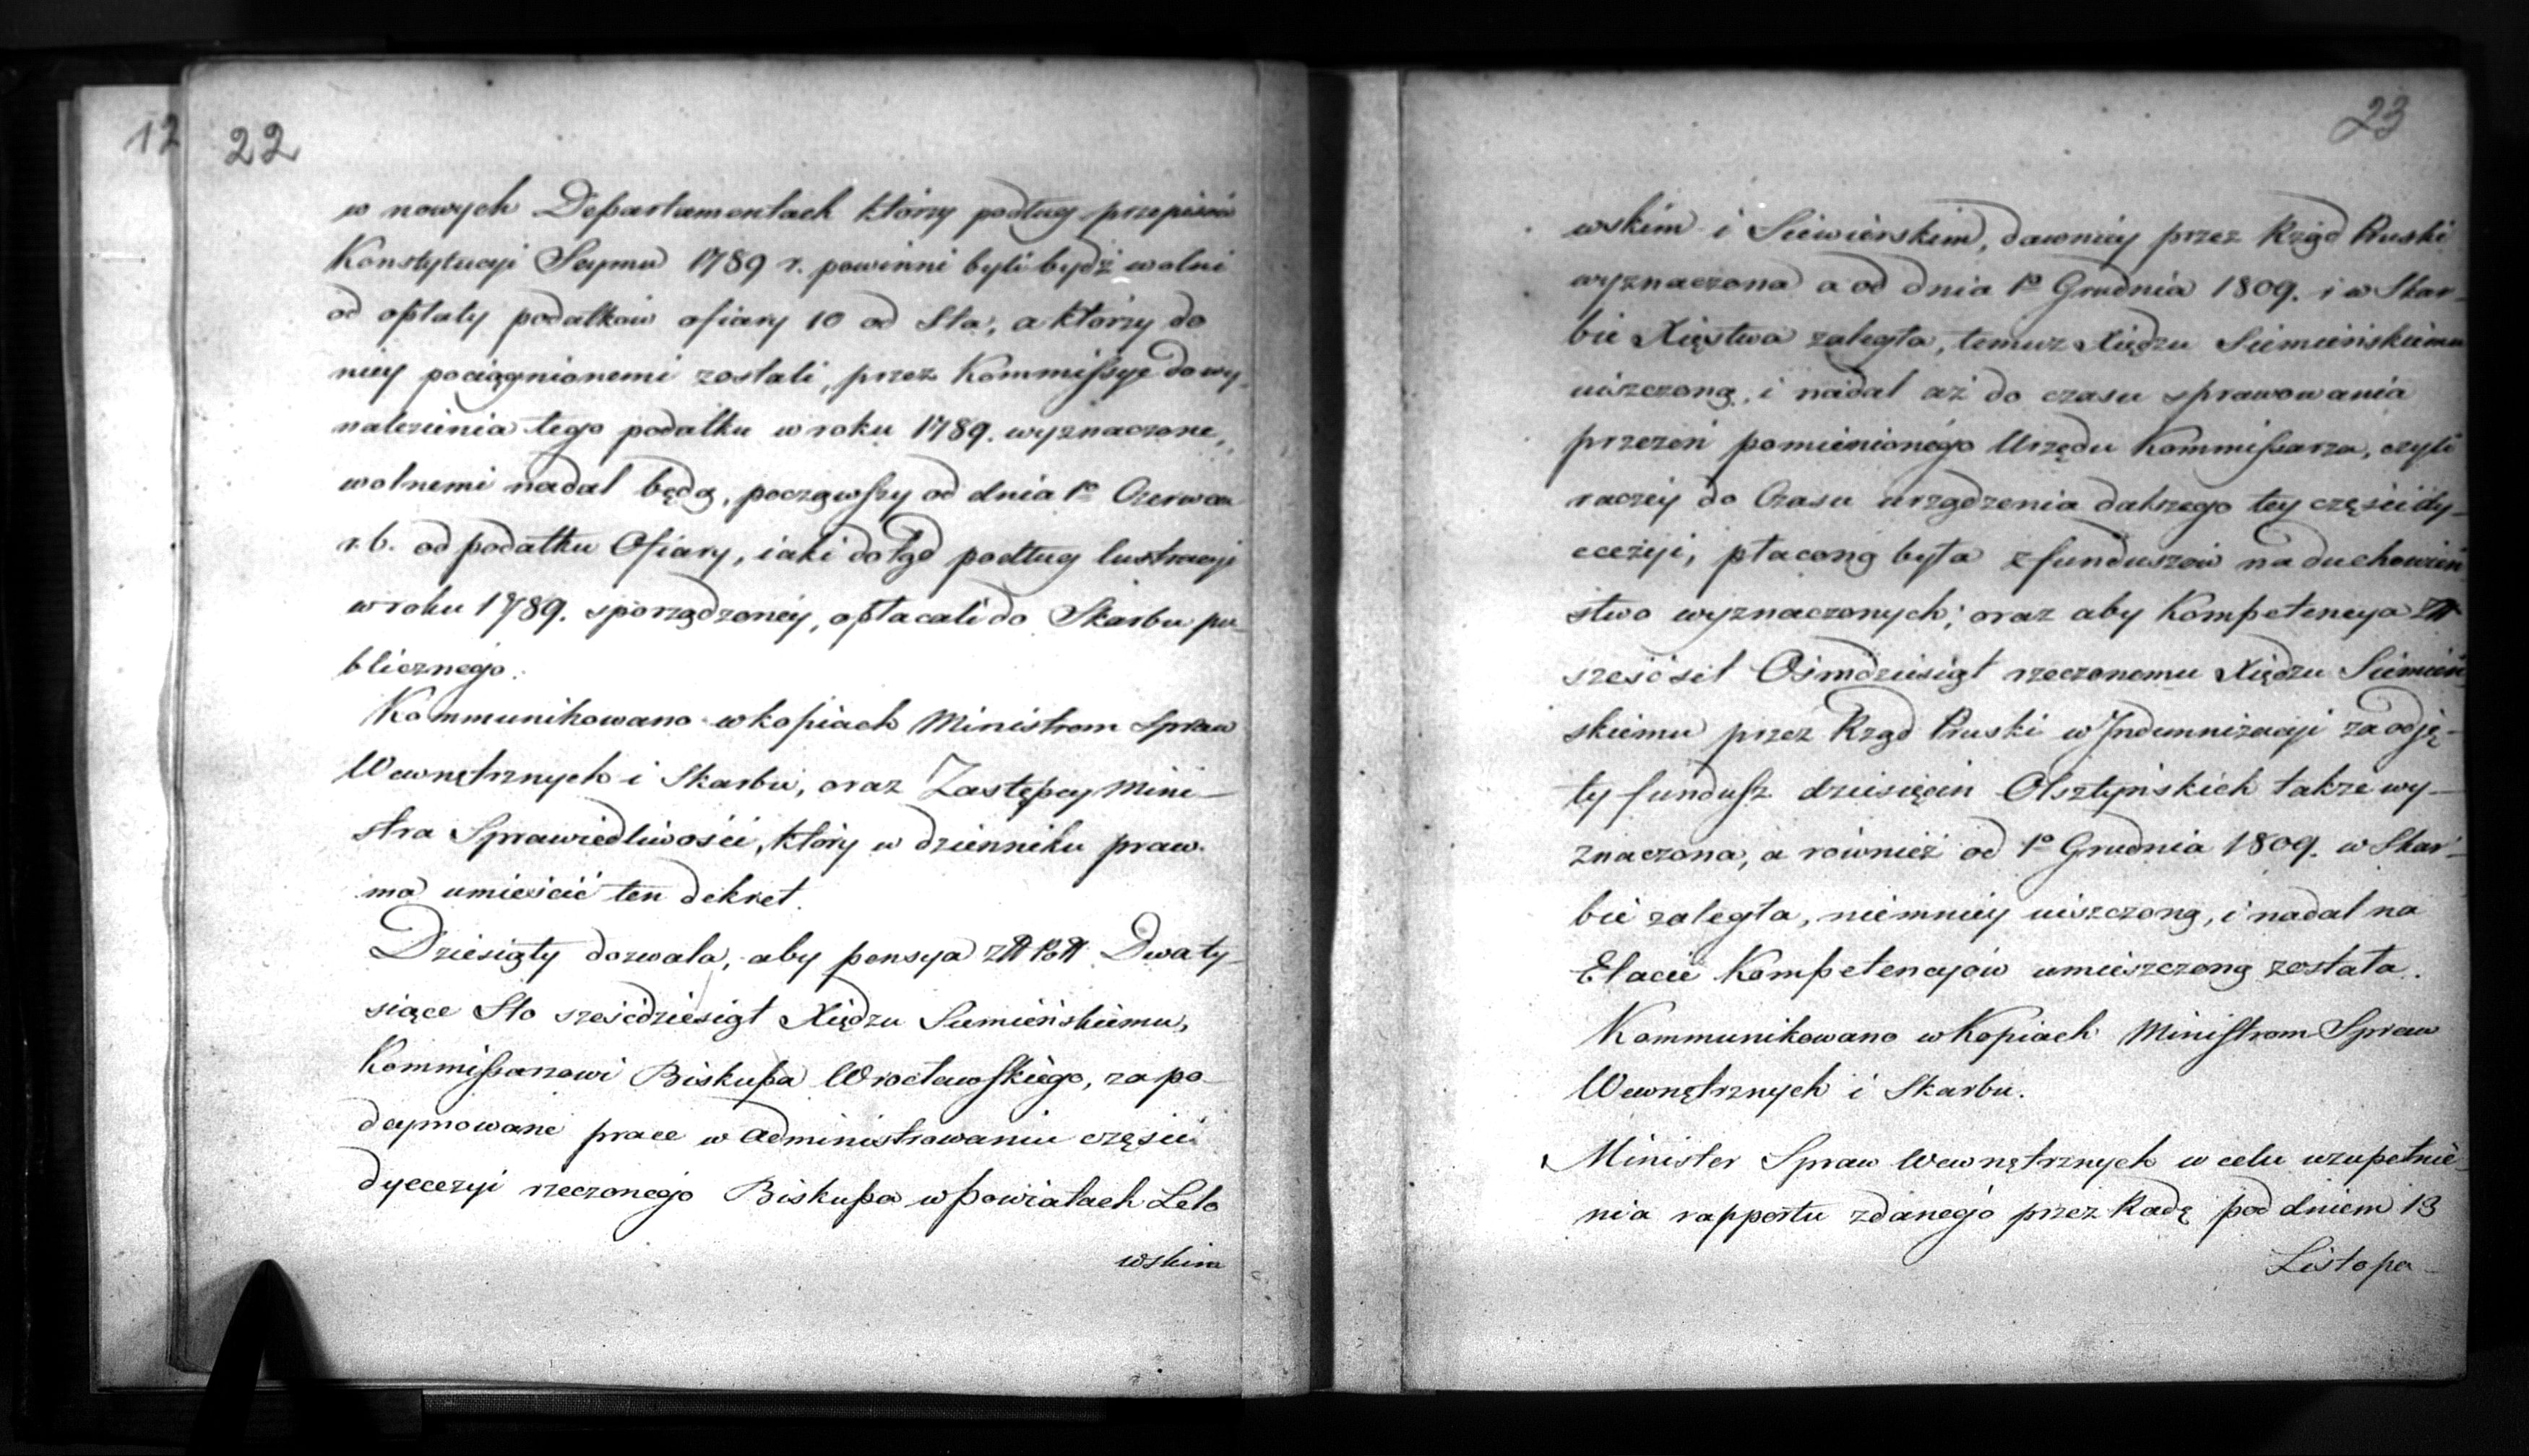 12
22
w nowych Departamentach którzy podług przepisów
Konstytucyi Seymu 1789 r. powinni byli bydź wolni
od opłaty podatków ofiary 10 od Sta, a którzy do
niey pociągnionemi zostali, przez Kommissye do wy-
nalezienia tego podatku w roku 1789. wyznaczone,
wolnemi nadal będą, począwszy od dnia 1º Czerwca
r. b. od podatku Ofiary, iaki dotąd podług lustracyi
w roku 1789. sporządzoney, opłacali do Skarbu pu-
blicznego.
Kommunikowano w kopiach Ministrom Spraw
Wewnętrznych i Skarbu, oraz Zastępcy Mini-
stra Sprawiedliwości, który w dzienniku praw
ma umieścić ten dekret.
Dziesiąty dozwala, aby pensya Złł Poll Dwa ty-
siące Sto sześćdziesiąt Xiędzu Siemieńskiemu,
Kommissarzowi Biskupa Wrocławskiego, za po-
deymowane prace w administrowaniu części
dyecezyi rzeczonego Biskupa w powiatach Lelo
wskim
23
wskim i Siewierskim, dawniey przez Rząd Pruski
wyznaczona a od dnia 1º Grudnia 1809. i w Skar-
bie Xięstwa zaległa, temuż Xiędzu Siemieńskiemu
uiszczoną, i nadal aż do czasu sprawowania
przezeń pomienionego Urzędu Kommissarza, czyli
raczey do Czasu urządzenia dalszego tey części dy-
ecezyi, płaconą była z funduszów na duchowień
stwo wyznaczonych; oraz aby Kompetencya Złł
sześćset Ośmdziesiąt rzeczonemu Xiędzu Siemień
skiemu przez Rząd Pruski w Indemnizacyi za odję-
ty fundusz dziesięcin Olsztyńskich także wy-
znaczona, a również od 1º Grudnia 1809. w Skar-
bie zaległa, niemniey uiszczoną, i nadal na
Etacie Kompetencyów umieszczoną została.
Kommunikowano w Kopiach Ministrom Spraw
Wewnętrznych i Skarbu.
Minister Spraw Wewnętrznych w celu uzupełnie-
nia rapportu zdanego przez Radę pod dniem 13
Listopa-